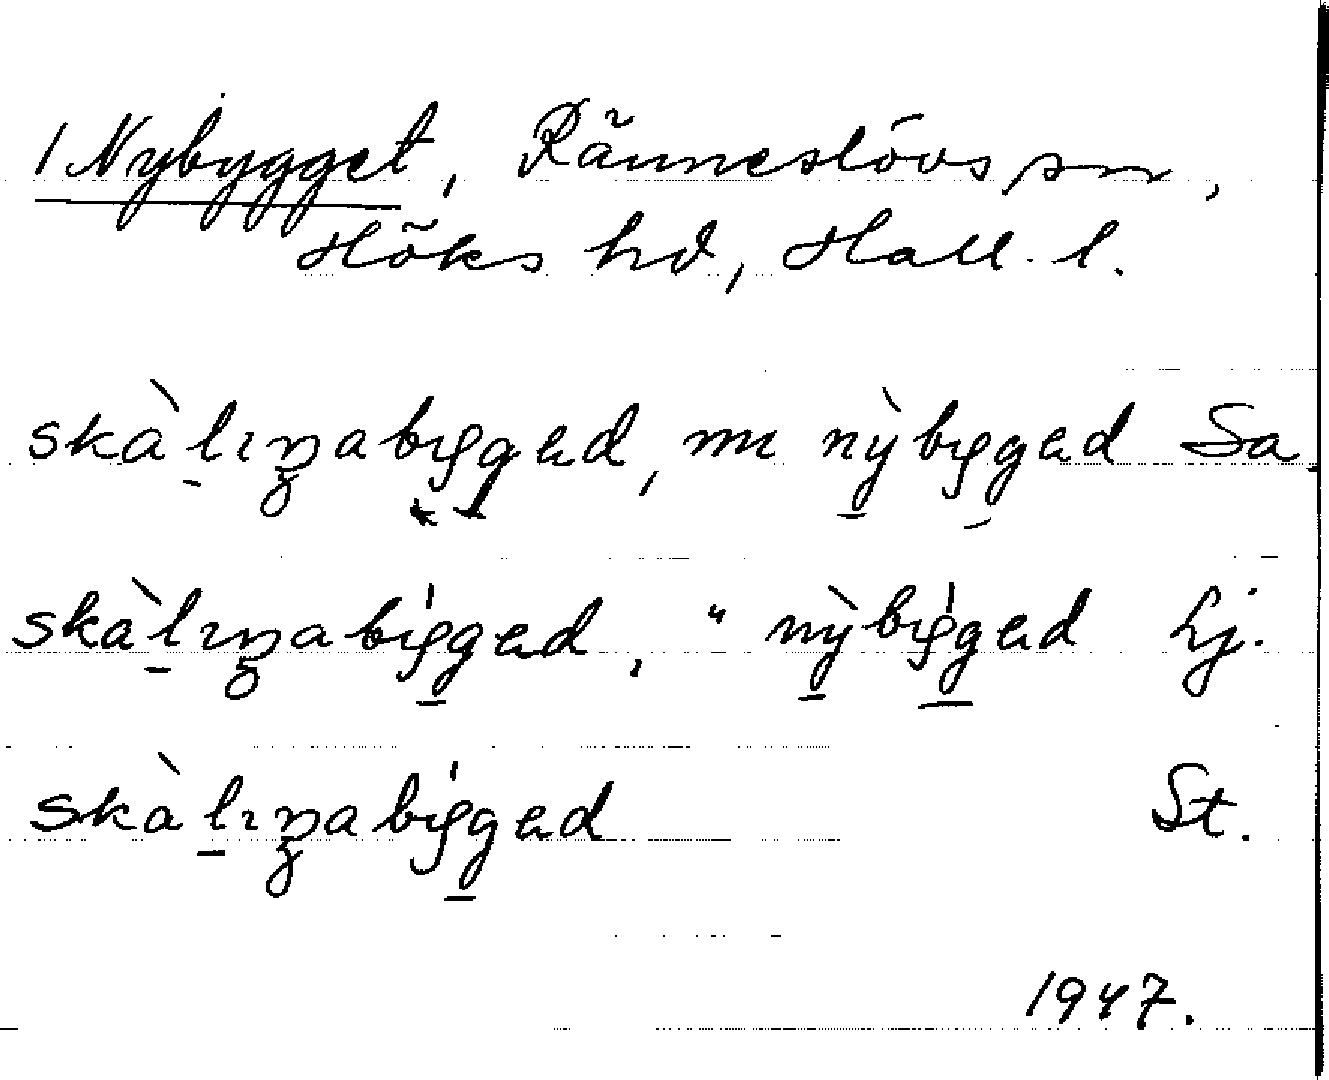 1 Nybygget, Ränneslövs sn,
Höks hd, Hall. l.
skàlıŋabıgged, nu nỳbıgged Sa.
skàlıŋabıgged, " nỳbıgged Lj.
skàlıŋabıgged St.
1947.